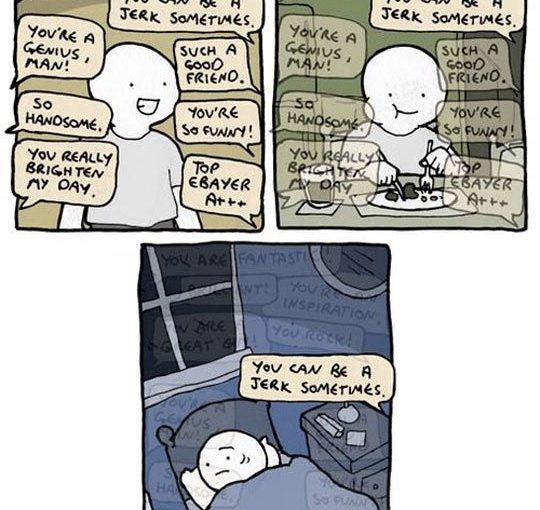 YOU CAN BE A
JERK SOMETIMES.
YOU'RE A
GENIUS,
MAN!
SUCH A
GOOD
FRIEND.
SO
HANDSOME.
YOU'RE
SO FUNNY!
YOU REALLY
BRIGHTEN
MY DAY.
TOP
EBAYER
A+++
YOU CAN BE A
JERK SOMETIMES.
YOU'RE A
GENIUS,
MAN!
SUCH A
GOOD
FRIEND.
SO
HANDSOME.
YOU'RE
SO FUNNY!
YOU REALLY
BRIGHTEN
MY DAY
TOP
EBAYER
A+++
YOU ARE FANTASTIC!
YOU'RE AN
INSPIRATION.
YOU ARE
GREAT
YOU ROCK!
YOU CAN BE A
JERK SOMETIMES.
YOU'RE A
GENIUS
SO FUNNY